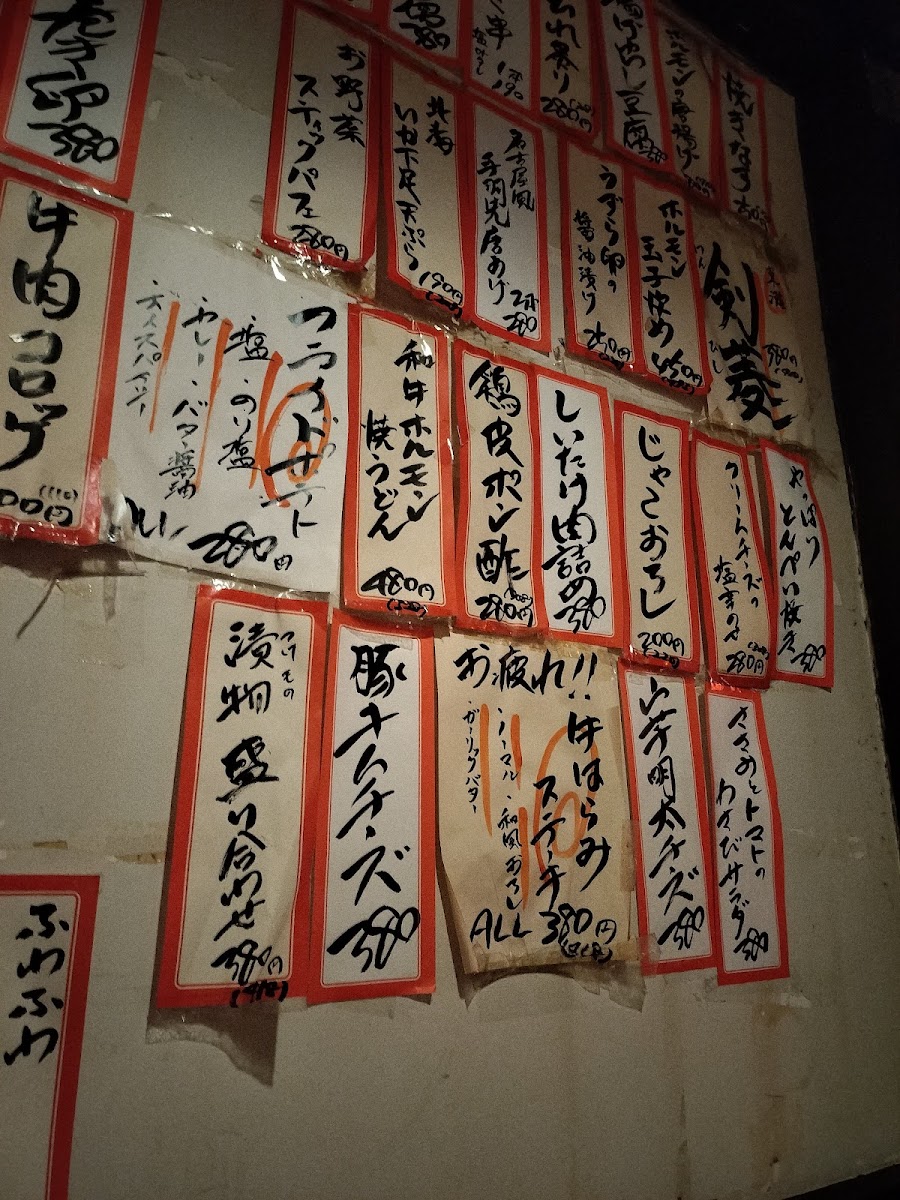 焼きなす
ホルモンの唐揚げ
揚げ出し豆腐
380
280円
1本190
380
お野菜
スティックパフェ
380円
いか下足天ぷら
190円
名古屋風
手羽先唐あげ
2本
280
うずら卵の
醤油漬け
ホルモン
玉子炒め
450円
剣菱
けん
びし
380円
巻き卵
380
牛肉コロッケ
00円
(110)
フライドポテト
・塩・のり塩
・カレー・バター醤油
ALL
280円
和牛ホルモン
焼うどん
480円
鶏皮ポン酢
280円
しいたけ肉詰め
380
じゃこおろし
200円
クリームチーズの
塩辛のせ
280円
やっぱり
とんぺい焼き
380
漬物盛り合わせ
つけもの
380円
(418)
豚キムチーズ
380
お疲れ!!
牛はらみ
ステーキ
・ノーマル・和風おろし
・ガーリックバター
ALL 380円
(418)
明太チーズ
380
ささみとトマトの
わさびサラダ
380
ふわふわ